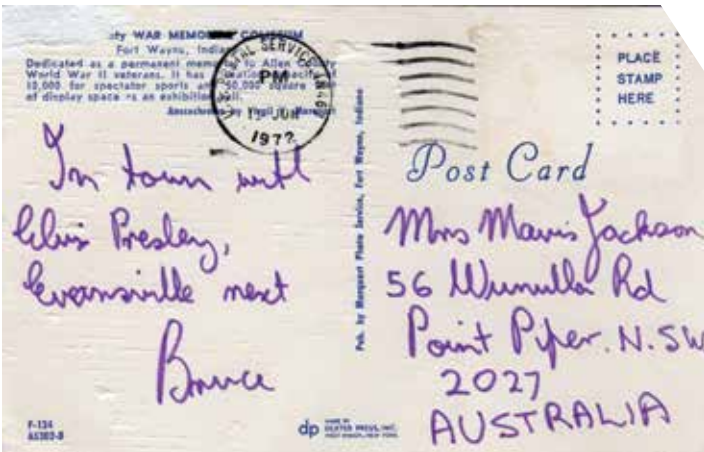 ty WAR MEMO COLISEUM
Fort Wayne, India
Dedicated as a permanent mem to Allen
World War II veterans. It has
10,000 for spectator sports an 50,000 square
of display space as an exhibition
by Virgil
PM
JUN
1972
PLACE
STAMP
HERE
Post Card
In town with
Elvis Presley,
Evansville next
Bruce
Pub. by Marquart Photo Service, Fort Wayne, Indiana
Mrs Mavis Jackson
56 Wunulla Rd
Point Piper. N.SW
2027
AUSTRALIA
P-134
dp
MADE BY
DEXTER PRESS, INC.
WEST NYACK, NEW YORK